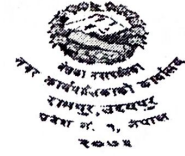 बेलका नगरपालिका
नगर कार्यपालिकाको कार्यालय
रामपुर, उदयपुर
प्रदेश नं. १, नेपाल